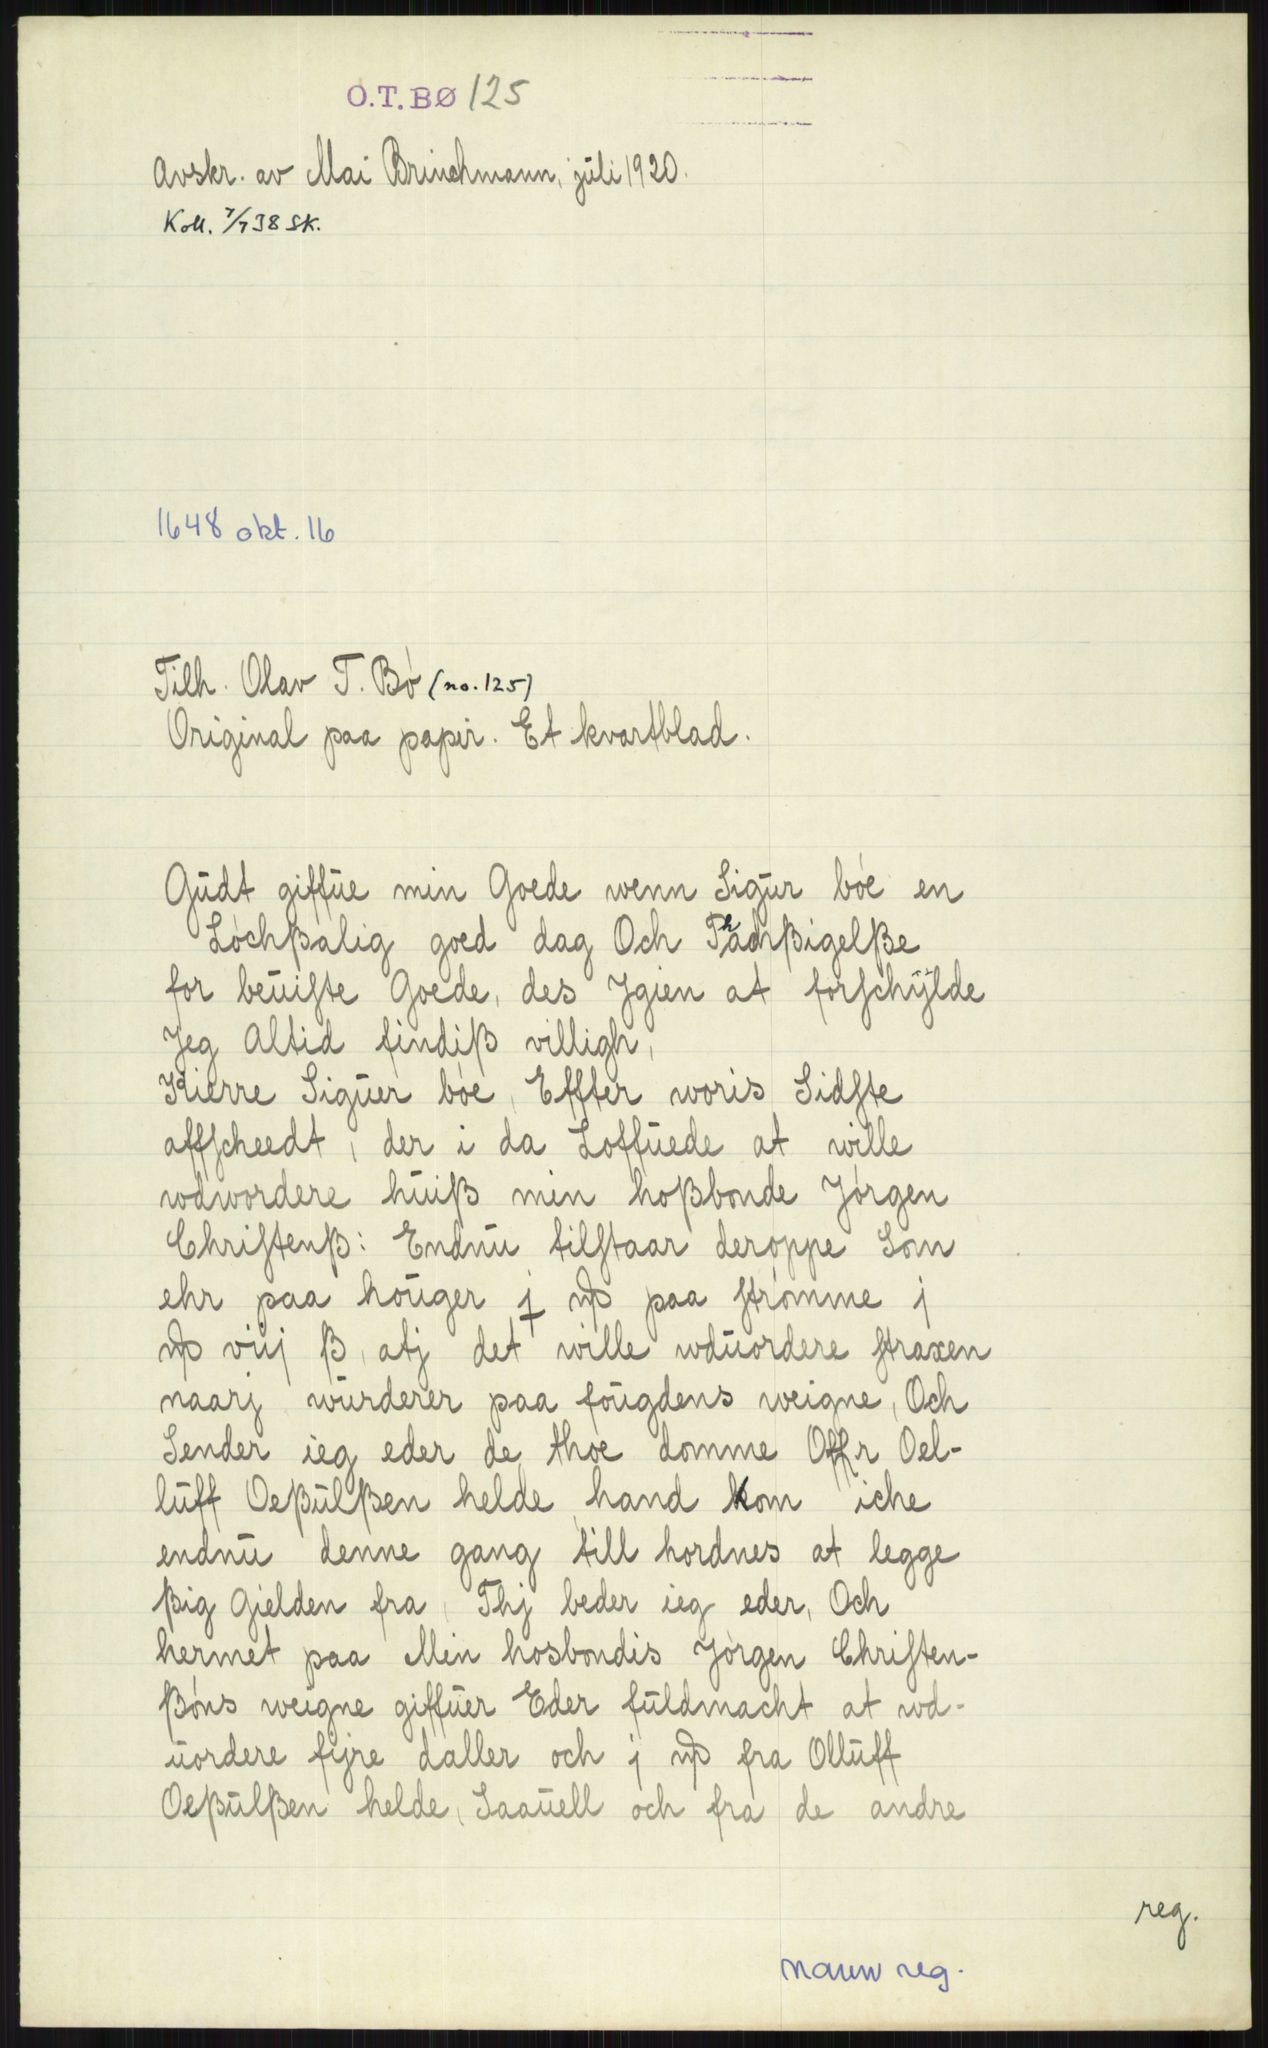 O.T.BØ 125
Avskr. av Mai Brinchmann, juli 1920.
Koll. 7/7 38 SK.
1648 okt. 16
Tilh. Olav T. Bø (no. 125)
Original paa papir. Et kvartblad.
Gŭdt giffŭe min Goede wenn Sigŭr bóe en
Lóchßalig goed dag Och Thachßigelße
for beŭiste Goede, des Jgien at forschÿlde
Jeg Altid findiß villigh,
Kierre Sigŭer bóe, Effter woris Sidste
affscheedt, der i da Loffŭede at wille
wdwordere hŭiß min hoßbonde Jórgen
Christenß: Endnŭ tilstaar deroppe Som
ehr paa hoŭger j paa strómme j
viij ß, atj det wille wdŭordere straxen
naarj wŭrderer paa foŭgdens weigne, Och
Sender ieg eder de thoe domme Offr Oel-
lŭff Oeßŭlßen helde, hand kom iche
endnŭ denne gang till hordnes at legge
ßig Gielden fra, Thj beder ieg eder, Och
hermet paa Min hosbondis Jórgen Christen-
ßóns weigne giffŭer Eder fŭldmacht at wd-
ŭordere fijre daller och j fra Ollŭff
Oeßŭlßen helde, Saaŭell och fra de andre
reg.
navn reg.